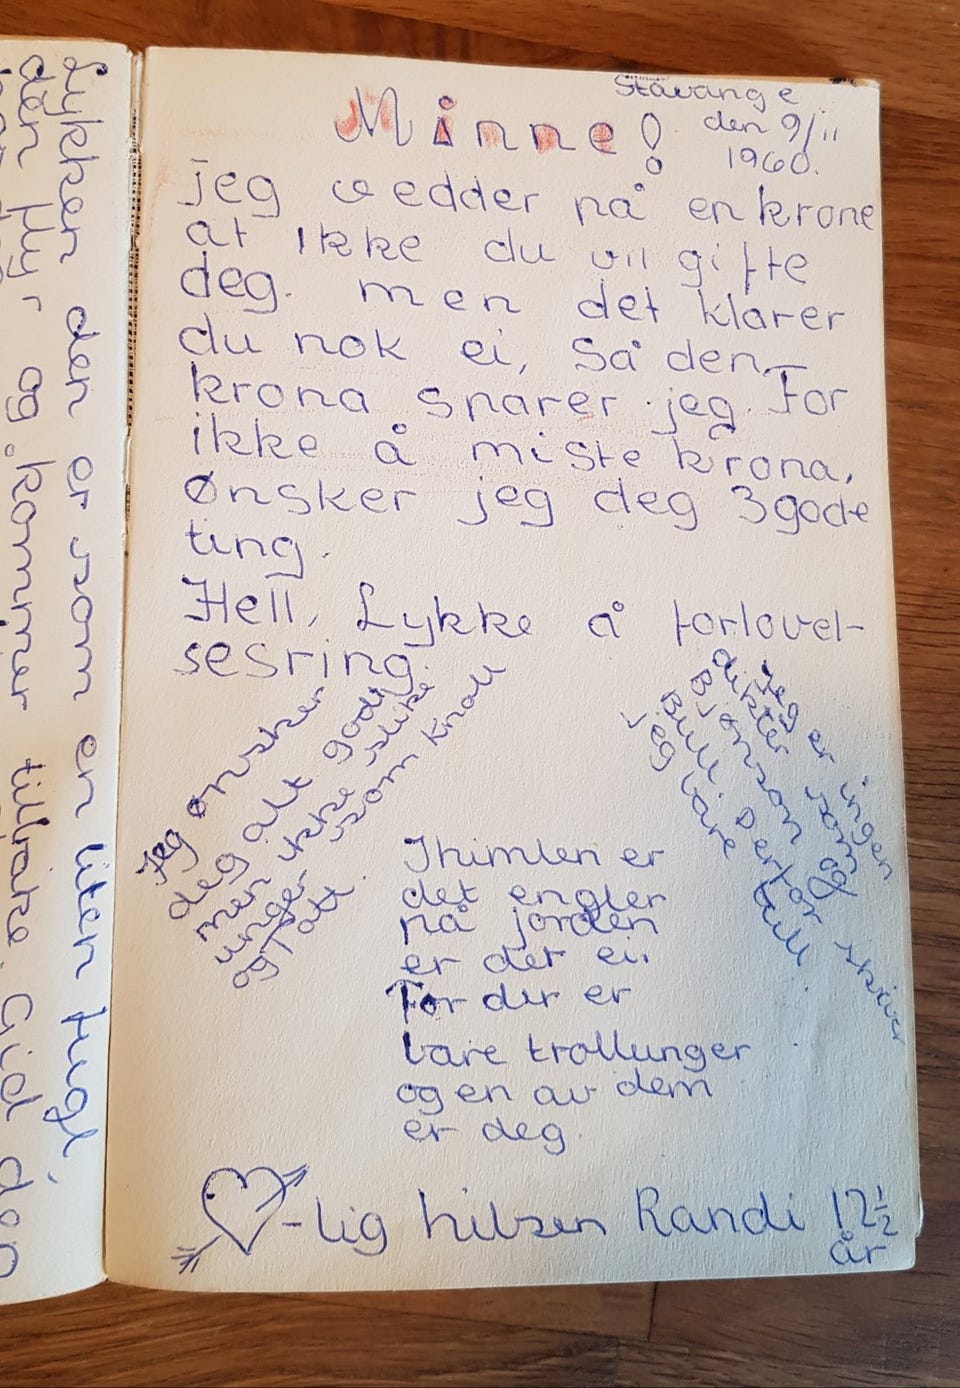 Lykken den er som en liten fugl,
den flyr og kommer tilbake. Gid den
Stavange
den 9/11
1960.
Minne!
jeg vedder på en krone
at ikke du vil gifte
deg. men det klarer
du nok ei, Så den
krona snarer jeg. For
ikke å miste krona,
Ønsker jeg deg 3 gode
ting.
Hell, Lykke å forlovel-
sesring.
Jeg ønsker
deg alt godt
men ikke slike
unger som Knoll
og Tott.
Jeg er ingen
dikter som
Bjønson og
Bull Derfor skriver
jeg bare tull.
I himlen er
det engler
på jorden
er det ei.
For der er
bare trollunger
og en av dem
er deg.
-lig hilsen Randi 12½
år